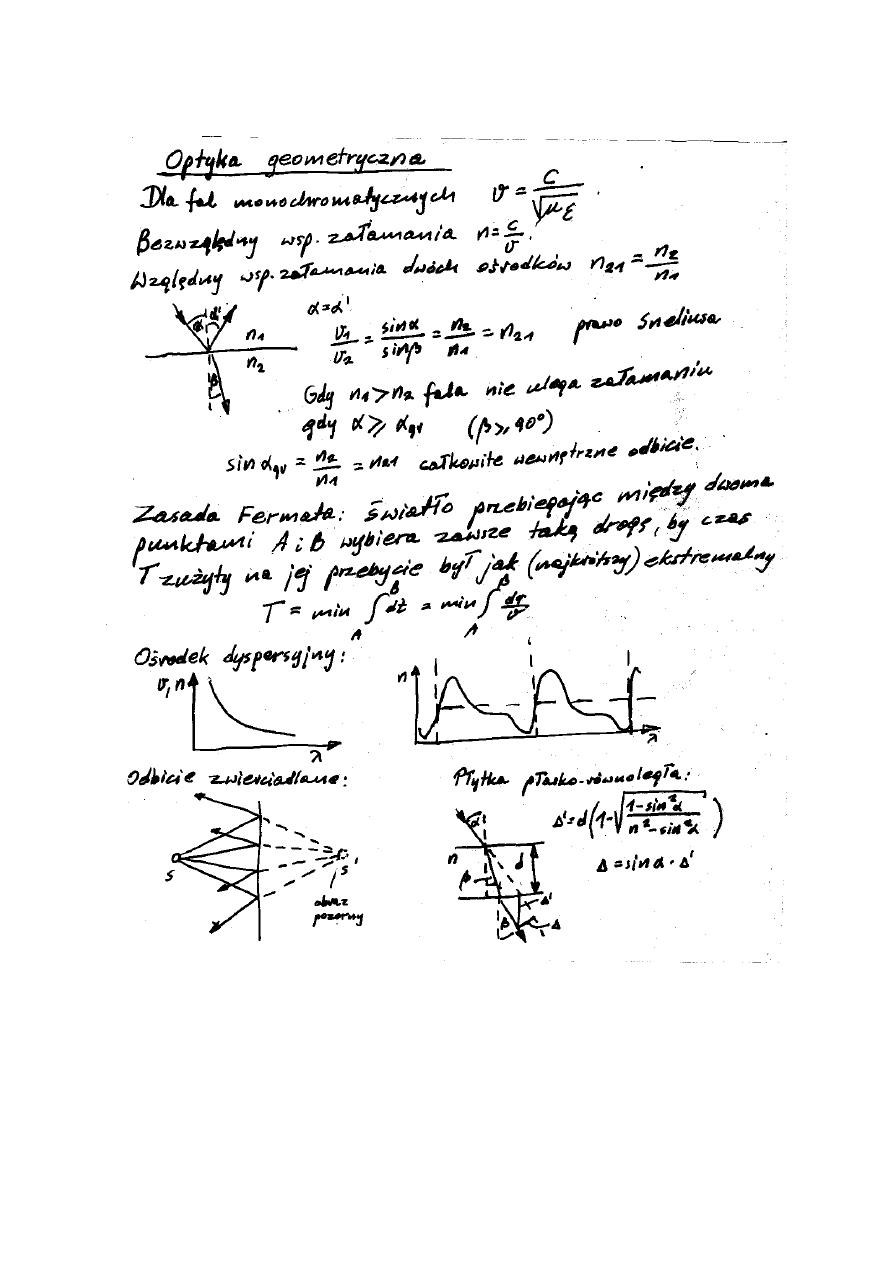 Optyka geometryczna
Dla fal monochromatycznych v = c/√με.
Bezwzględny wsp. załamania n = c/v.
Względny wsp. załamania dwóch ośrodków n₂₁ = n₂/n₁
α α' n₁ n₂ β
α = α'
v₁/v₂ = sinα/sinβ = n₂/n₁ = n₂₁ prawo Sneliusa
Gdy n₁ > n₂ fala nie ulega załamaniu
gdy α ⩾ α_gr (β ⩾ 90°)
sin α_gr = n₂/n₁ = n₂₁ całkowite wewnętrzne odbicie.
Zasada Fermata: światło przebiegając między dwoma
punktami A i B wybiera zawsze taką drogę, by czas
T zużyty na jej przebycie był jak (najkrótszy) ekstremalny
T = min ∫_A^B dt = min ∫_A^B dr/v
Ośrodek dyspersyjny:
v, n λ
n λ
Odbicie zwierciadlane:
S S'
obraz
pozorny
Płytka płasko-równoległa:
Δ' = d(1-√((1-sin²α)/(n²-sin²α)))
Δ = sin α · Δ'
α n d β Δ' β Δ